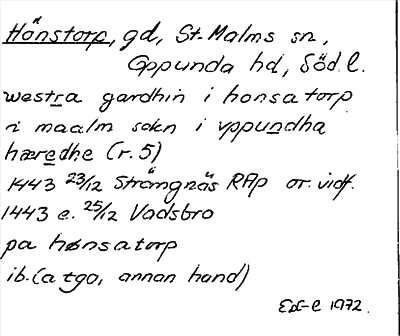 Hönstorp, gd, St. Malms sn,
Oppunda hd, Söd. l.
westra gardhin i honsa torp
i maalm sokn i vppundha
hæredhe (r. 5)
1443 23/12 Strängnäs RAp or. vidf.
1443 e. 25/12 Vadsbro
pa hønsatorp
ib. (a tgo, annan hand)
1972.